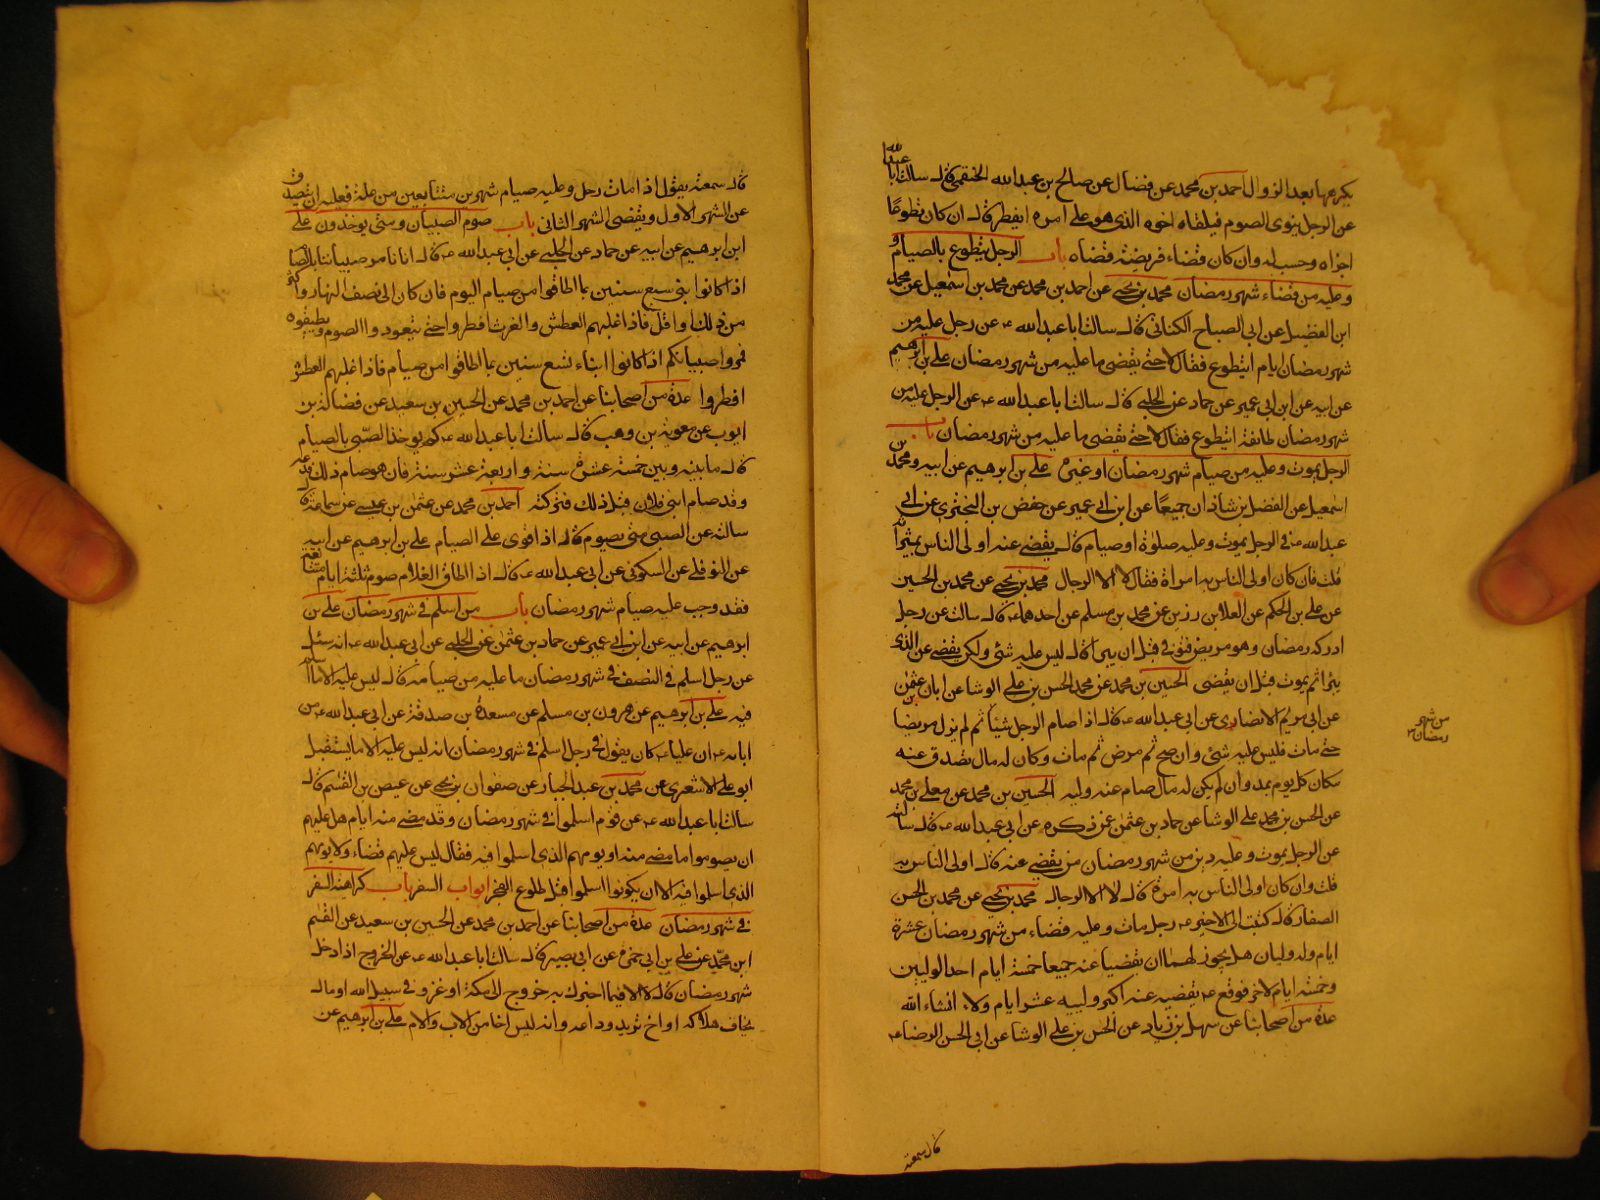 يكرعها بعد الزوال احمد بن محمد عن فضال عن صالح بن عبدالله الخثعمي قال سالت ابا عبدالله
عن الرجل ينوى الصوم فيلقاه اخوه الذى هو على امره ايفطر قال ان كان تطوعا
اجزاه وحسب له وان كان قضاء فريضة قضاه باب الرجل يتطوع بالصيام و
وعليه من قضاء شهر رمضان محمد بن يحيى عن احمد بن محمد عن محمد بن اسمعيل عن محمد
ابن الفضيل عن ابى الصباح الكنانى قال سالت ابا عبدالله ع عن رجل عليه من
شهر رمضان ايام ايتطوع فقال لا حتى يقضى ما عليه من شهر رمضان على بن ابرهيم
عن ابيه عن ابن ابى عمير عن حماد عن الحلبى قال سالت ابا عبدالله ع عن الرجل عليه من
شهر رمضان طائفة ايتطوع فقال لا حتى يقضى ما عليه من شهر رمضان باب
الرجل يموت وعليه من صيام شهر رمضان او غيره على بن ابرهيم عن ابيه ومحمد بن
اسمعيل عن الفضل بن شاذان جميعا عن ابن ابى عمير عن حفص بن البخترى عن ابى
عبدالله ع فى الرجل يموت وعليه صلوة او صيام قال يقضى عنه اولى الناس بميراثه
قلت فان كان اولى الناس به امراة فقال لا الا الرجال محمد بن يحيى عن محمد بن الحسين
عن على بن الحكم عن العلا بن رزين عن محمد بن مسلم عن احدهما ع قال سالت عن رجل
ادركه رمضان وهو مريض فتوفى قبل ان يبرا قال ليس عليه شئ ولكن يقضى عن الذى
يبرا ثم يموت قبل ان يقضى الحسين بن محمد عن محمد الحسن بن على الوشا عن ابان عثمن
عن ابى مريم الانصارى عن ابى عبدالله ع قال اذا صام الرجل شيئا ثم لم يزل مريضا
من شهر
رمضان
حتى مات فليس عليه شئ وان صح ثم مرض ثم مات وكان له مال تصدق عنه
مكان كل يوم بمد وان لم يكن له مال صام عنه وليه الحسين بن محمد عن معلى بن محمد
عن الحسن بن محمد على الوشا عن حماد بن عثمن عن ذكره عن ابى عبدالله ع قال سالته
عن الرجل يموت وعليه دين من شهر رمضان من يقضى عنه قال اولى الناس به
قلت وان كان اولى الناس به امرة قال لا الا الرجال محمد بن يحيى عن محمد بن الحسن
الصفار قال كتبت الى الاخير ع رجل مات وعليه قضاء من شهر رمضان عشرة
ايام وله وليان هل يجوز لهما ان يقضيا عنه جميعا خمسة ايام احد الوليين
وخمسة ايام الاخر فوقع ع يقضيه عنه اكبر ولييه عشر ايام ولاء انشاء الله
عدة من اصحابنا عن سهل بن زياد عن الحسن بن على الوشا عن ابى الحسن الرضا ع
قال سمعته
قال سمعته يقول اذا مات رجل وعليه صيام شهرين متتابعين من علة فعليه ان يتصدق
عن الشهر الاول ويقضى الشهر الثانى باب صوم الصبيان ومتى يوخذون على
ابن ابرهيم عن ابيه عن حماد عن الحلبى عن ابى عبدالله ع قال انا نامر صبياننا بالصيام
اذا كانوا بنى سبع سنين بما اطاقوا من صيام اليوم فان كان الى نصف النهار او اكثر
من ذلك او اقل فاذا غلبهم العطش والغرث افطروا حتى يتعودوا الصوم ويطيقوه
فمروا صبيانكم اذا كانوا ابناء تسع سنين بما اطاقوا من صيام فاذا غلبهم العطش
افطروا عدة من اصحابنا عن احمد بن محمد عن الحسين بن سعيد عن فضالة بن
ايوب عن معوية بن وهب قال سالت ابا عبدالله ع كم يوخذ الصبى بالصيام
قال ما بينه وبين خمسة عشرة سنة واربعة عشر سنة فان هو صام ذلك فدعه
وقد صام ابنى فلان قبل ذلك فتركته احمد بن محمد عن عثمن بن عيسى عن سماعة قال
سالته عن الصبى متى يصوم قال اذا قوى على الصيام على بن ابرهيم عن ابيه
عن النوفلى عن السكونى عن ابى عبدالله ع قال اذا اطاق الغلام صوم ثلثة ايام متتابعة
فقد وجب عليه صيام شهر رمضان باب من اسلم فى شهر رمضان على بن
ابرهيم عن ابيه عن ابن ابى عمير عن حماد بن عثمن عن الحلبى عن ابى عبدالله ع انه سئل
عن رجل اسلم فى النصف فى شهر رمضان ما عليه من صيامه قال ليس عليه الا ما اسلم
فيه على بن ابرهيم عن هرون بن مسلم عن مسعدة بن صدقة عن ابى عبدالله ع من
ابائه ان عليا ع كان يقول فى رجل اسلم فى شهر رمضان انه ليس عليه الا ما يستقبل
ابو على الاشعرى عن محمد بن عبد الجبار عن صفوان بن يحيى عن عيص بن القسم قال
سالت ابا عبدالله ع عن قوم اسلموا فى شهر رمضان وقد مضى منه ايام هل عليهم
ان يصوموا ما مضى منه او يومهم الذى اسلموا فيه فقال ليس عليهم قضاء ولا يومهم
الذى اسلموا فيه الا ان يكونوا اسلموا قبل طلوع الفجر ابواب السفر باب كراهية السفر
فى شهر رمضان عدة من اصحابنا عن احمد بن محمد عن الحسين بن سعيد عن القسم
ابن محمد عن على بن ابى حمزة عن ابى بصير قال سالت ابا عبدالله ع عن الخروج اذا دخل
شهر رمضان قال لا الا فيما اخبرك به خروج الى مكة او غزو فى سبيل الله او مال
يخاف هلاكه او اخ تريد وداعه وانه ليس اخا من الاب والام على بن ابرهيم عن